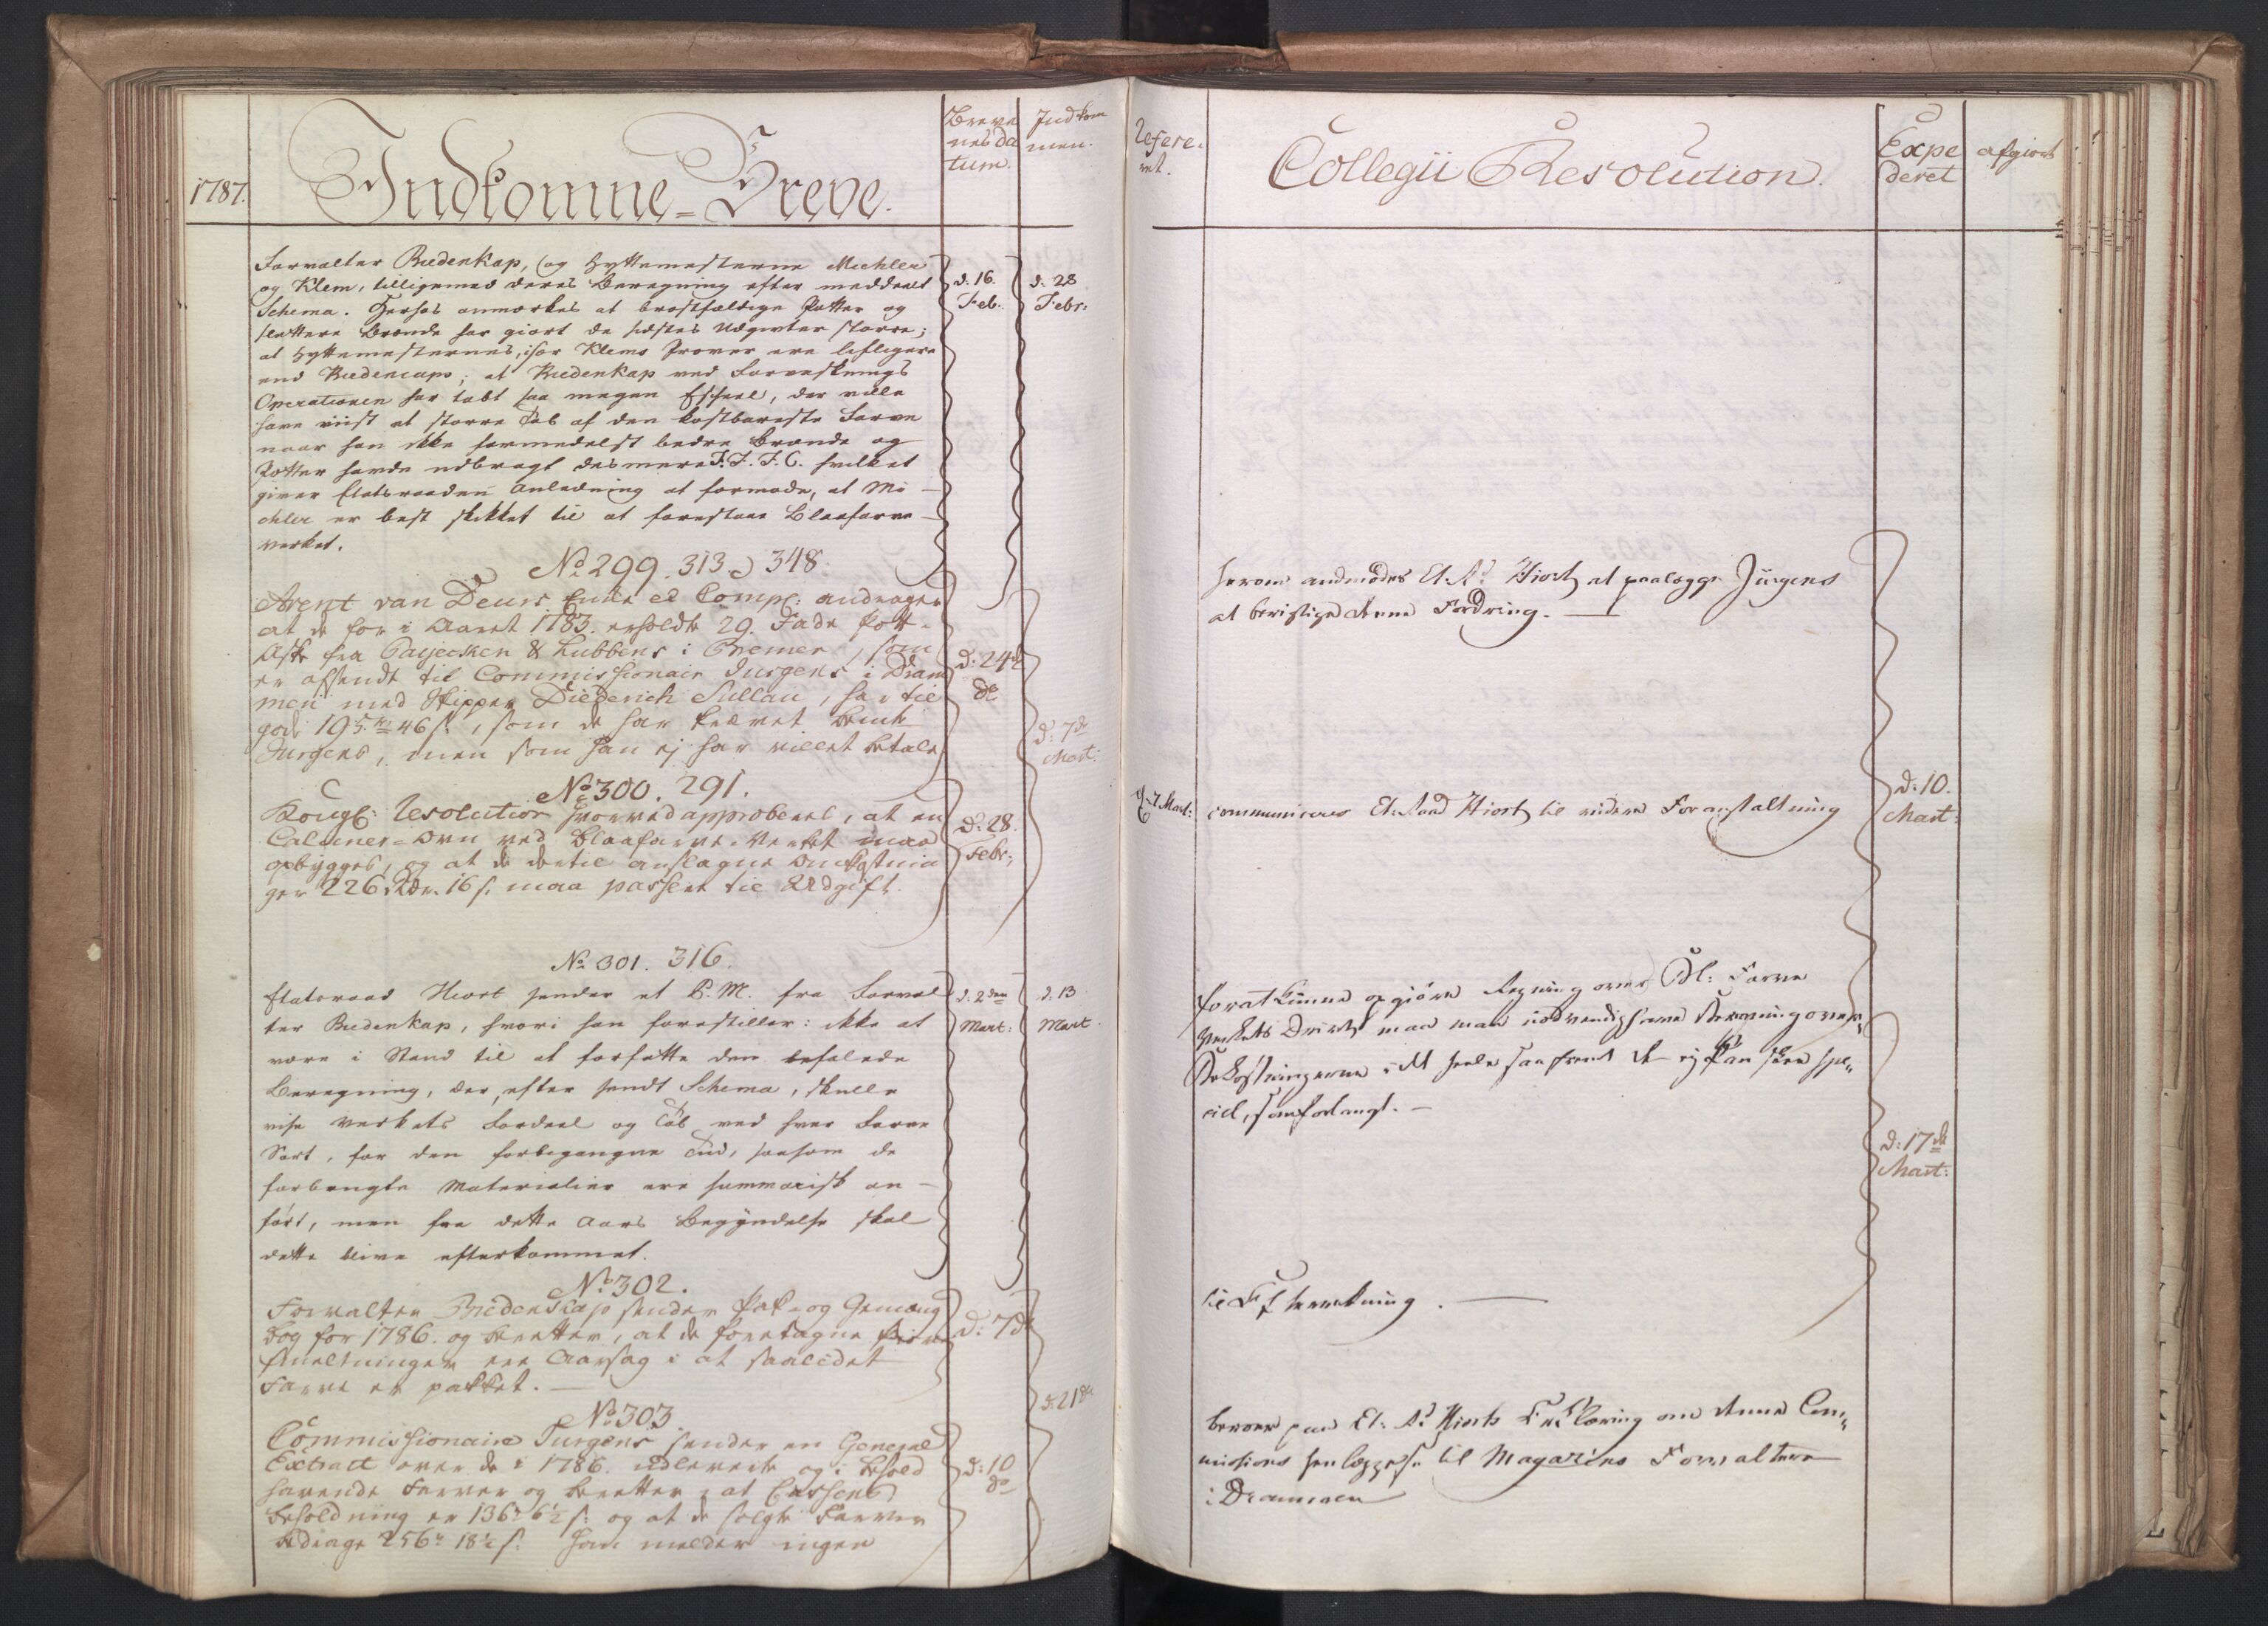 1787.
Indkomne-Breve.
Breve
nes Da
tum.
Indkom
men.
Forvalter Bredenkap, og Hyttemesterne Mechler
og Klem, tilligemed deres Beregning efter meddeelt
Schema. Herhos anmerkes at brøstfældige Potter og
slettere Brende har giort de sidstes Udgivter større;
at Hyttemesternes, især Klems Prøver ere lifligere
end Bredencaps; at Bredenkap ved Forvasknings
Operationen har tabt saa megen Eschel, der ville
have viist et større Tab af den kostbareste Farve
naar han ikke formedelst bedre Brende og
Potter havde udbragt desmere F.F.F.C. hvilket
giver Etatsraaden Anledning at formode, at Me-
chler er best skikket til at forestaae Blaafarve-
verket.
d: 16.
Feb:
d: 28
Febr:
No 299. 313. 348.
Arent van Deurs Enke et Comp: andrager
at de for i Aaret 1783. erholdte 29. Fade Pott-
Aske fra Payecken & Lubbens i Bremen, som
er afsendt til Commissionair Jurgens i Dram
men med Skipper Diederich Sullau, har til
gode 195 rd 46 s., som de har krævet bemte
Jurgens, men som han ej har villet betale
d: 24de
do
d: 7de
Mart:
No 300. 291.
Kongl: Resolution hvorved approberes, at en
Calciner-Ovn ved Blaafarve-Verket maae
opbygges, og at de dertil anslagne Omkostnin
ger 226 Rdr. 16 s. maa passere til Udgift.
d: 28.
Febr:
No 301. 316.
Etatsraad Hiort sender et P.M. fra Forval
ter Bredenkap, hvori han forestiller: ikke at
være i Stand til at forfatte den befalede
Beregning, der, efter sendt Schema, skulle
vise Verkets Fordeel og Tab ved hver Farve
Sort, for den forbigangne Tid, saasom de
forbrugte Materialier ere summarisk an-
ført, men fra dette Aars Begyndelse skal
dette blive efterkommet.
d: 2den
Mart:
d: 13
Mart.
No 302.
Forvalter Bredenkap sender Pak- og Gemeng
bog for 1786. og beretter, at de foretagne
smeltninger ere Aarsag i at saalidet
Farve er pakket.
d: 7de
d: 21de
No 303.
Commissionaire Jurgens sender en General
Extract over de i 1786. udleverte og i Behold
havende Farver og beretter at Cassens
Beholdning er 136 r 6½ s. og at de solgte Farver
bedrage 256 r 18½ s. Han melder ingen
d: 10
do
Refere-
ret.
Collegii Resolution.
Expe
deret
afgiort
herom anmodes Et: Rd Hiort at paalægge Jürgens
at berigtige denne Fordring.
d: 7. Mart:
communiceres Et: Raad Hiort til videre Foranstaltning
d: 10.
Mart:
forat kunne opgiøre Regning over Bl: Farve
Verkets Drivt maa man nødvendig have Beregning over
Bekostningerne i det heele saafremt det ej kan skee spe„
ciel, som forlangt.
d: 17de
Mart:
til Efterretning.
beroer paa Et: Rd Hiorts Erklæring om denne Com„
missions henlæggelse til Magazins Forvaltere
i Drammen